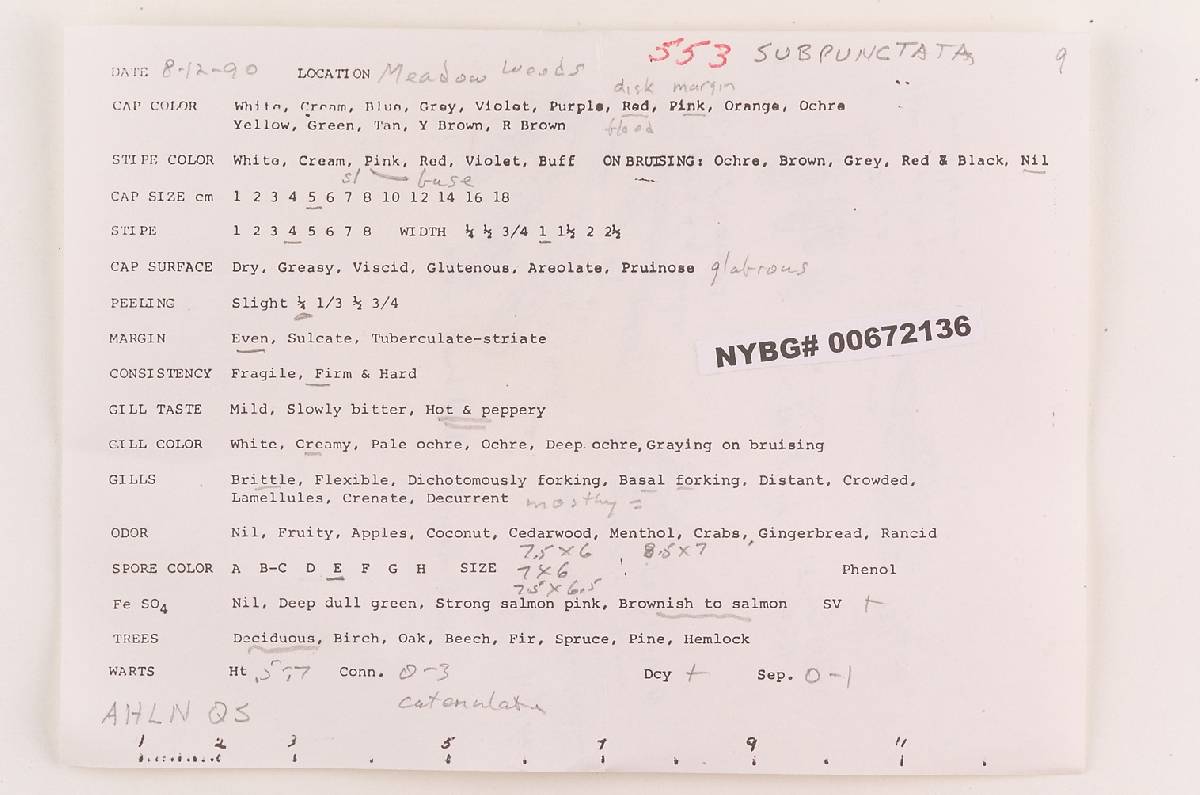 553 SUBPUNCTATA 9
DATE 8-12-90 LOCATION Meadow Woods
disk margin
CAP COLOR White, Cream, Blue, Grey, Violet, Purple, Red, Pink, Orange, Ochre
Yellow, Green, Tan, Y Brown, R Brown blood
STIPE COLOR White, Cream, Pink, Red, Violet, Buff ON BRUISING: Ochre, Brown, Grey, Red & Black, Nil
sl base
CAP SIZE cm 1 2 3 4 5 6 7 8 10 12 14 16 18
STIPE 1 2 3 4 5 6 7 8 WIDTH ¼ ½ 3/4 1 1½ 2 2½
CAP SURFACE Dry, Greasy, Viscid, Glutenous, Areolate, Pruinose glabrous
PEELING Slight ¼ 1/3 ½ 3/4
MARGIN Even, Sulcate, Tuberculate-striate
NYBG# 00672136
CONSISTENCY Fragile, Firm & Hard
GILL TASTE Mild, Slowly bitter, Hot & peppery
GILL COLOR White, Creamy, Pale ochre, Ochre, Deep ochre, Graying on bruising
GILLS Brittle, Flexible, Dichotomously forking, Basal forking, Distant, Crowded,
Lamellules, Crenate, Decurrent mostly =
ODOR Nil, Fruity, Apples, Coconut, Cedarwood, Menthol, Crabs, Gingerbread, Rancid
7.5 x 6 8.5 x 7
SPORE COLOR A B-C D E F G H SIZE 7 x 6 Phenol
7.5 x 6.5
Fe SO4 Nil, Deep dull green, Strong salmon pink, Brownish to salmon SV +
TREES Deciduous, Birch, Oak, Beech, Fir, Spruce, Pine, Hemlock
WARTS Ht .5-.7 Conn. 0-3 Dcy + Sep. 0-1
catenulate
AHLN QS
1 2 3 5 7 9 11